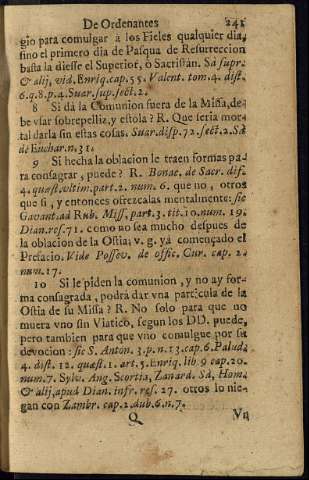 De Ordenantes 241
gio para comulgar à los Fieles qualquier dia,
sino el primero dia de Pasqua de Resurreccion
basta la diesse el Superior, ò Sacristàn. Sà supr.
& alij, vid. Enriq. cap. 55. Valent. tom. 4. dist.
6. q. 8. p. 4. Suar. sup. sect. 2.
8 Si dà la Comunion fuera de la Missa, de-
be vsar sobrepelliz, y estola? R. Que seria mor-
tal darla sin estas cosas. Suar. disp. 72. sect. 2. Sà
de Euchar. n. 31.
9 Si hecha la oblacion le traen formas pa-
ra consagrar, puede? R. Bonac. de Sacr. dis.
4. quæst. vltim. part. 2. num. 6. que no, otros
que si, y entonces ofrezcalas mentalmente: sic
Gavant. ad Rub. Miss, part. 3. tit. 10. num. 19.
Dian. ref. 71. como no sea mucho despues de
la oblacion de la Ostia; v. g. yà començado el
Prefacio. Vide Possov. de offic. Cur. cap. 2.
num. 17.
10 Si le piden la comunion, y no ay for-
ma consagrada, podrà dar vna particula de la
Ostia de su Missa? R. No solo para que no
muera vno sin Viatico, segun los DD. puede,
pero tambien para que vno comulgue por su
devocion: sic S. Anton. 3. p. n. 13. cap. 6. Palud.
4. dist. 12. quæst. 1. art. 5. Enriq. lib. 9 cap. 20.
num. 7. Sylv. Ang. Scortia, Zanard. Sà, Hom.
& alij, apud Dian. infr. ref. 27. otros lo nie-
gan con Zambr. cap. 2. dub. 6. n. 7.
Q Vn